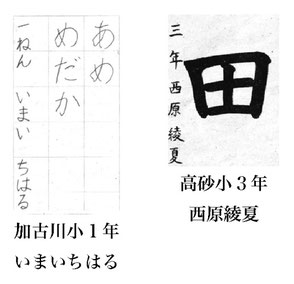 あめ
めだか
一ねん いまい ちはる
加古川小1年
いまいちはる
田
三年 西原綾夏
高砂小3年
西原綾夏